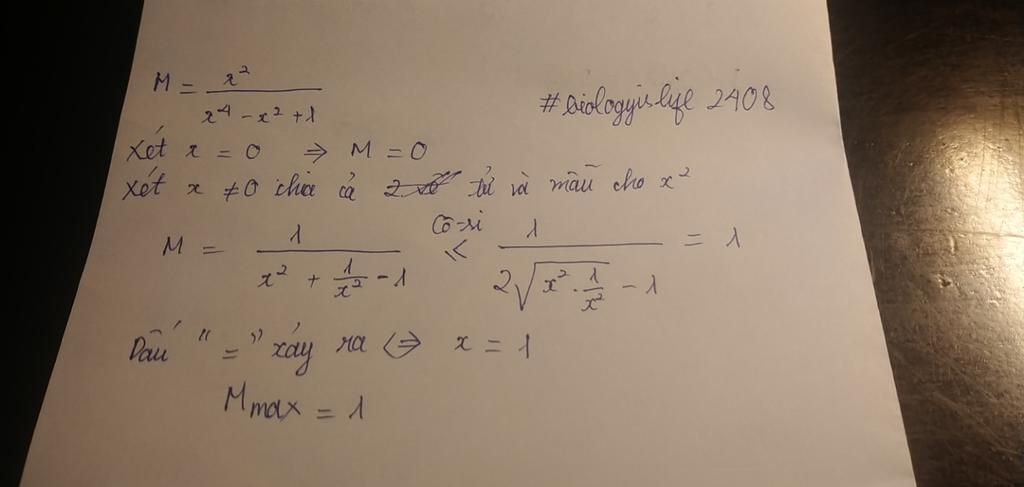 M = x² / (x⁴ - x² + 1)
#biologyis-life 2408
Xét x = 0 ⇒ M = 0
Xét x ≠ 0 chia cả tử và mẫu cho x²
M = 1 / (x² + 1/x² - 1) ≤ (Cô-si) 1 / (2√(x² · 1/x²) - 1) = 1
Dấu "=" xảy ra ⇔ x = 1
Mmax = 1